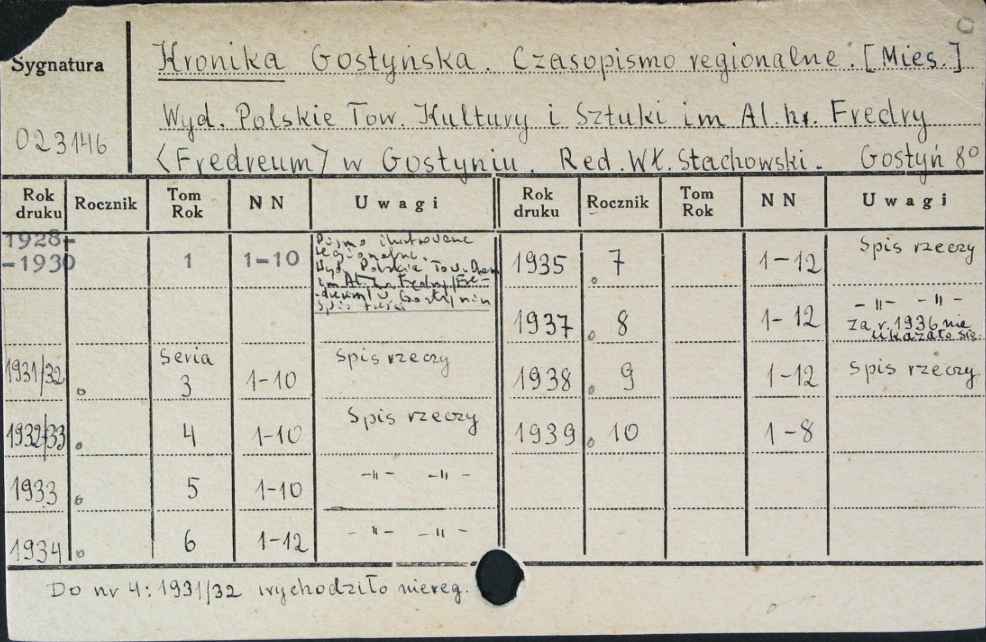 Sygnatura
023146
Kronika Gostyńska. Czasopismo regionalne. [Mies.]
Wyd. Polskie Tow. Kultury i Sztuki im Al. hr. Fredry
〈Fredreum〉 w Gostyniu. Red. Wł. Stachowski. Gostyń 8º
Rok druku Rocznik Tom Rok NN Uwagi Rok druku Rocznik Tom Rok NN Uwagi
1928-
-1930 1 1-10
Pismo ilustrowane
regionalne.
Wyd. Polskie Tow.
im Al. hr. Fredry /Fre-
dreum/ w Gostyniu
Spis rzeczy
1931/32 Seria 3 1-10 Spis rzeczy
1932/33 4 1-10 Spis rzeczy
1933 5 1-10 -"- -"-
1934 6 1-12 -"- -"-
1935 7 1-12 Spis rzeczy
1937 8 1-12 -"- -"-
za r. 1936 nie
ukazało się.
1938 9 1-12 Spis rzeczy
1939 10 1-8
Do nr 4: 1931/32 wychodziło niereg.